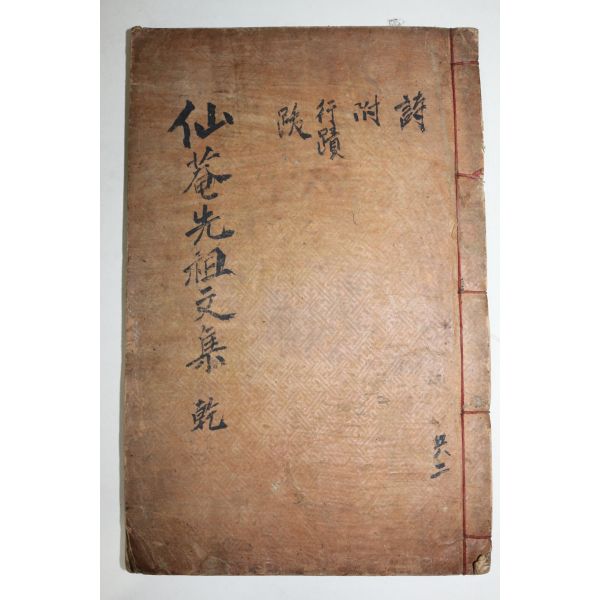 詩
附
行蹟
跋
仙菴先祖文集 乾
共二